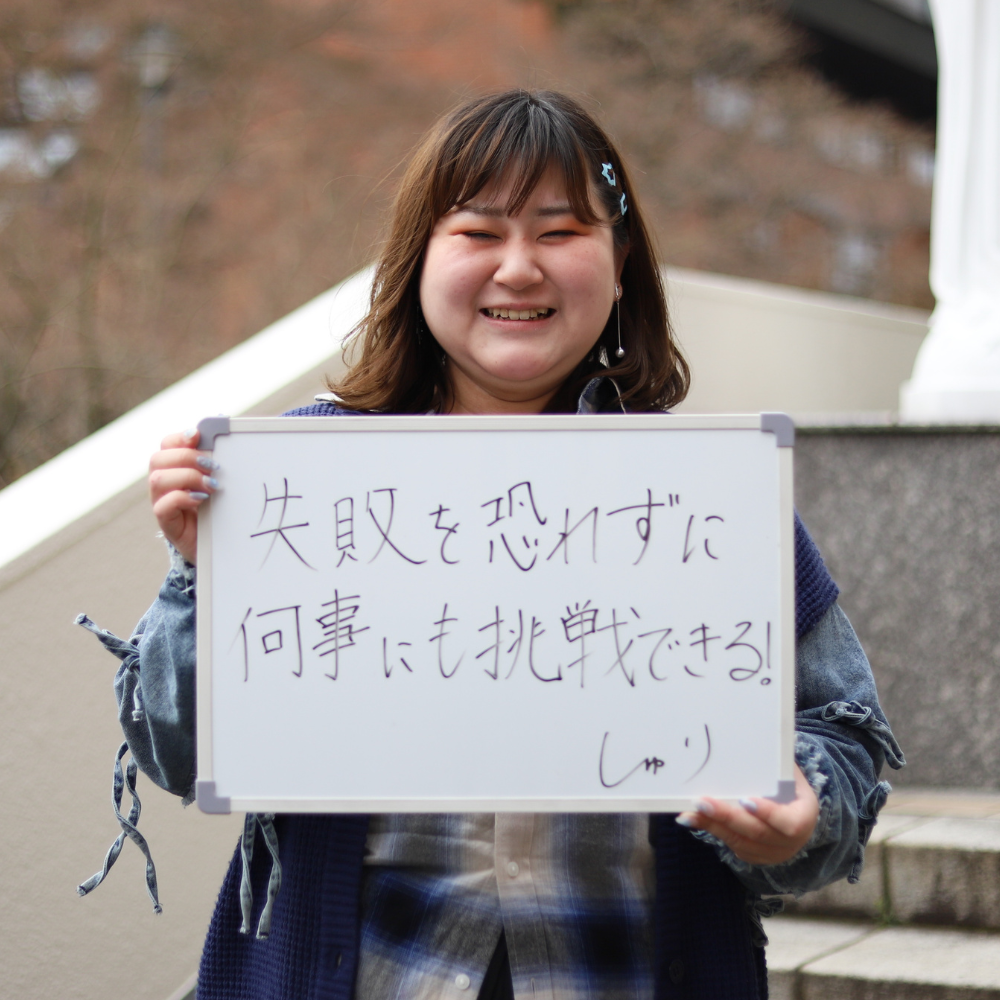 失敗を恐れずに
何事にも挑戦できる!
しゅり